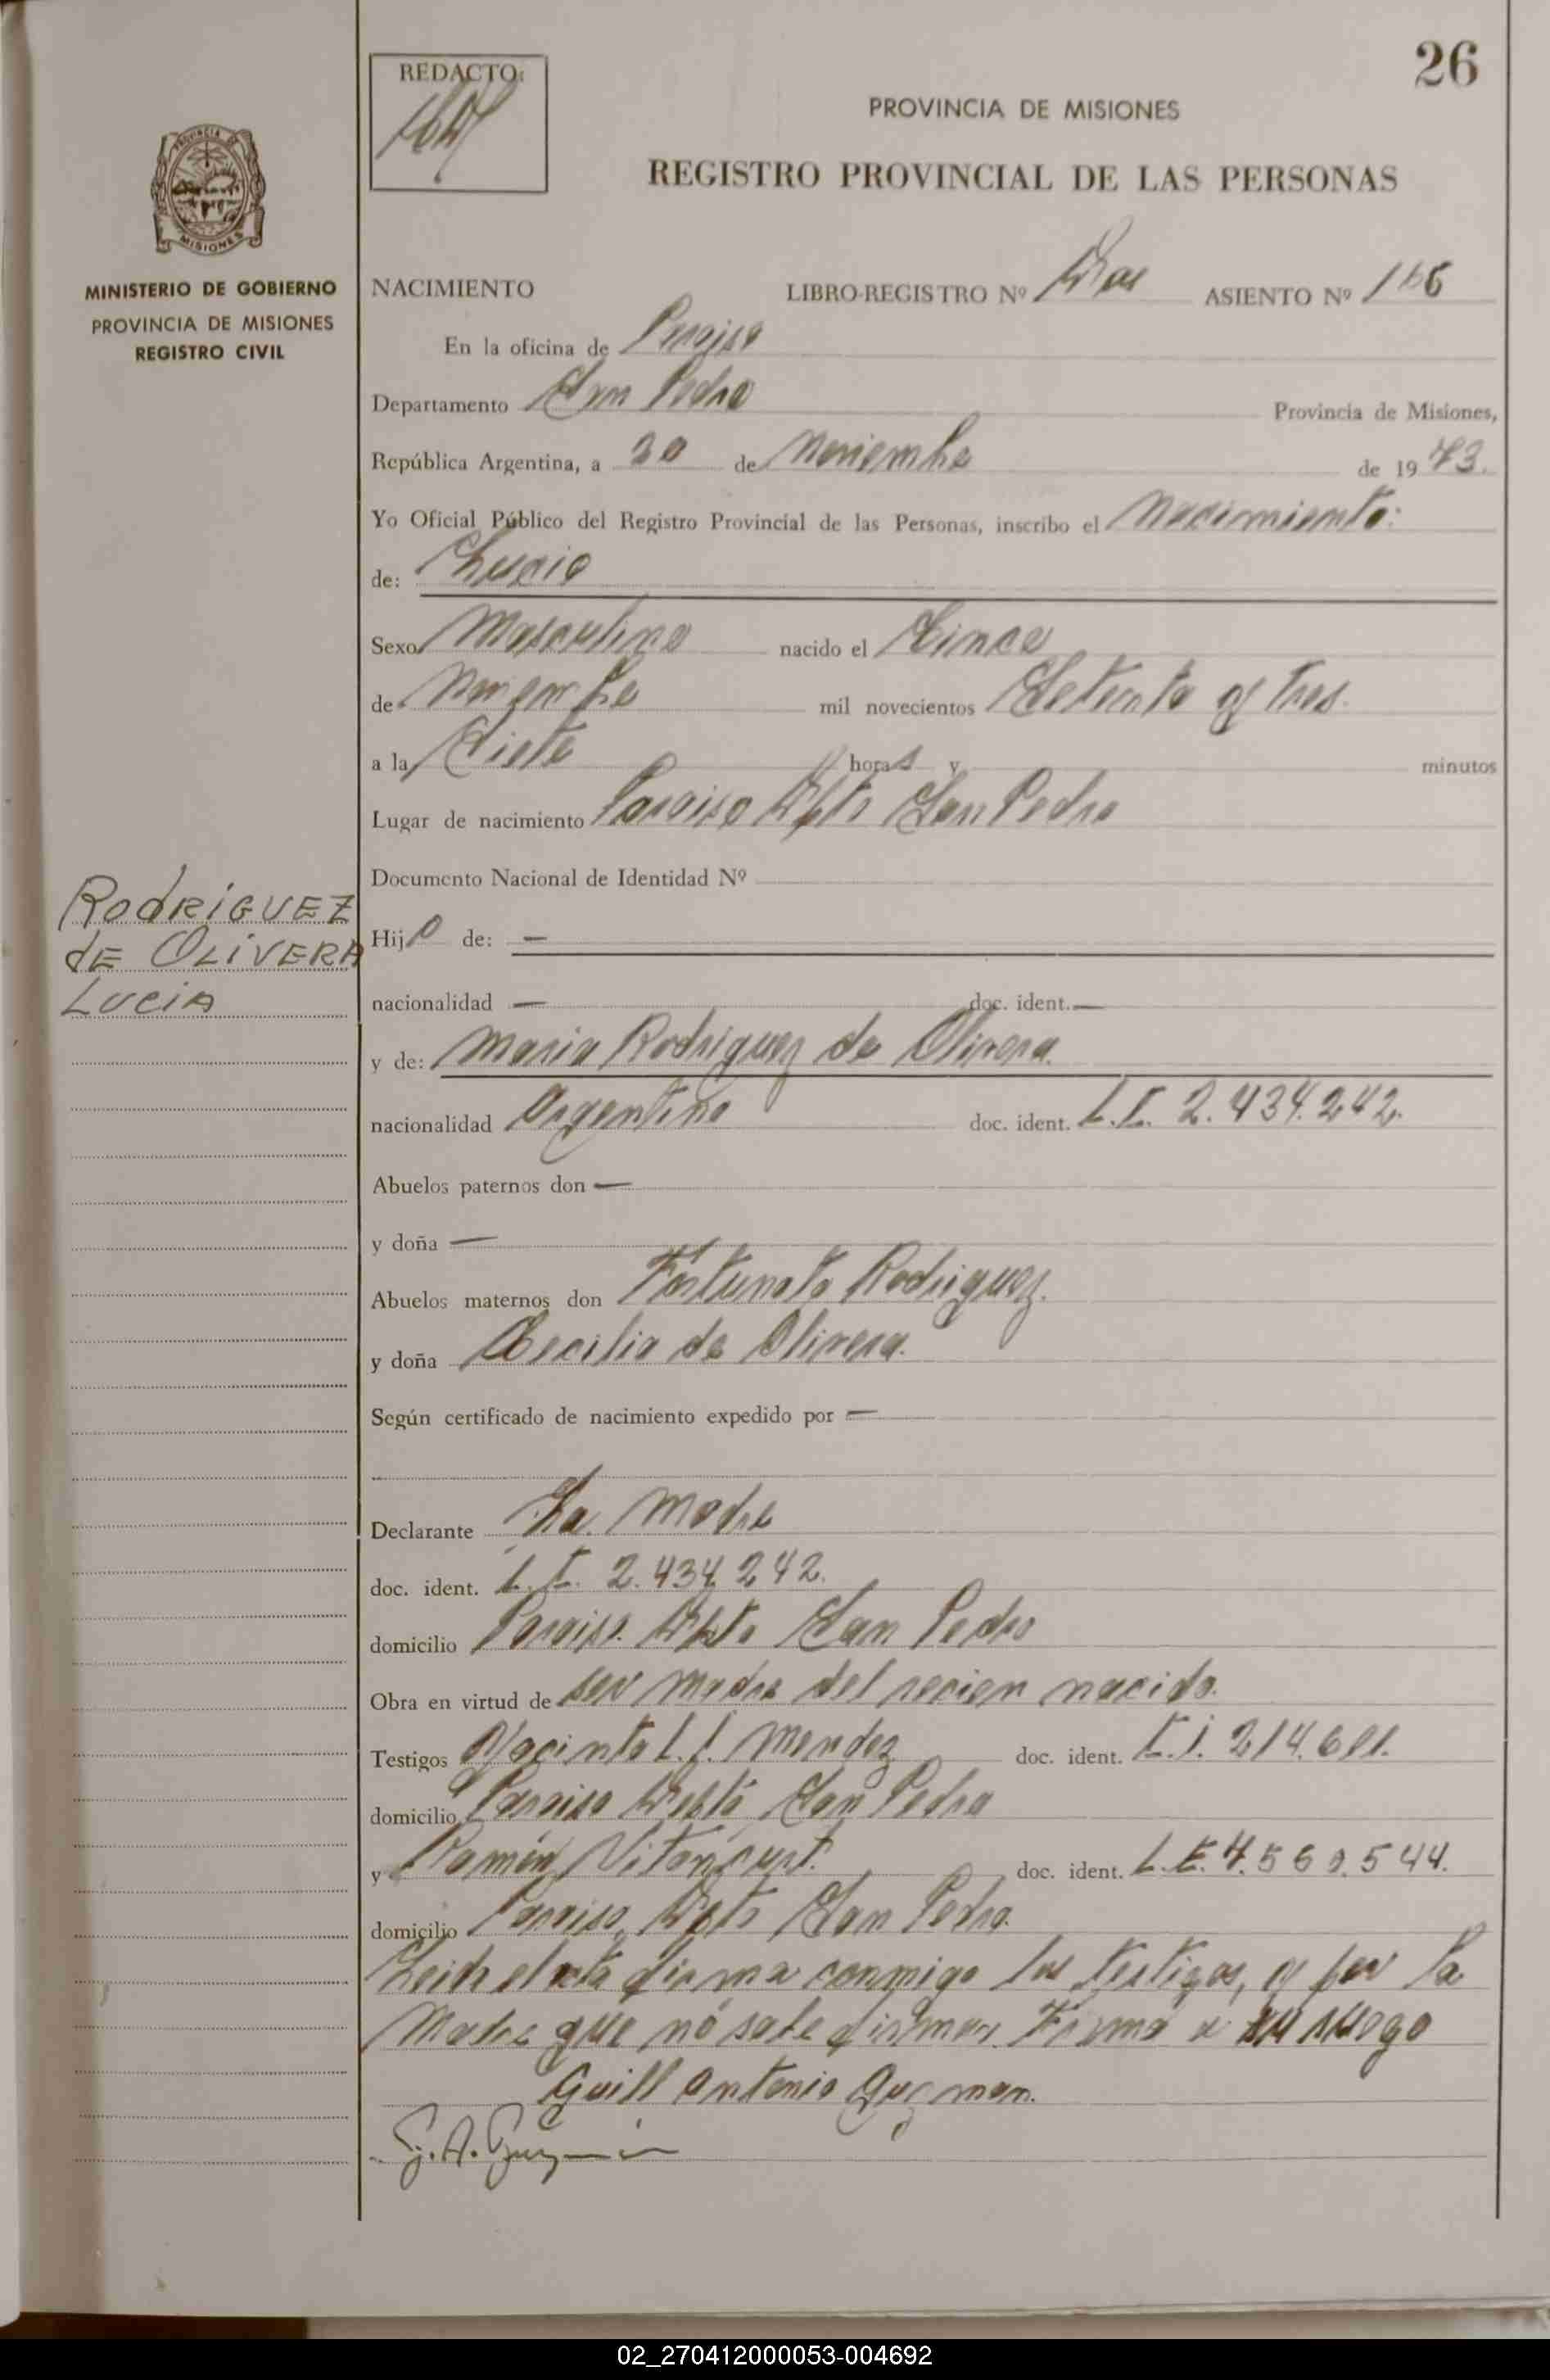 26
REDACTO:
PROVINCIA DE MISIONES
REGISTRO PROVINCIAL DE LAS PERSONAS
MISIONES
MINISTERIO DE GOBIERNO
PROVINCIA DE MISIONES
REGISTRO CIVIL
NACIMIENTO LIBRO-REGISTRO Nº Dos ASIENTO Nº 166
En la oficina de Paraiso
Departamento San Pedro Provincia de Misiones,
República Argentina, a 20 de Noviembre de 1973.
Yo Oficial Público del Registro Provincial de las Personas, inscribo el Nacimiento:
de: Lucio
Sexo Masculino nacido el Cinco
de Noviembre mil novecientos Setenta y Tres.
a la Siete horas y minutos
Lugar de nacimiento Paraiso Dpto San Pedro
Documento Nacional de Identidad Nº
RodRiGUEZ
dE OLiVERA
LuciA
Hijo de: —
nacionalidad — doc. ident. —
y de: Maria Rodriguez de Olivera.
nacionalidad Argentina doc. ident. L.C. 2.434.242.
Abuelos paternos don —
y doña —
Abuelos maternos don Fortunato Rodriguez.
y doña Cecilia de Olivera.
Según certificado de nacimiento expedido por —
Declarante La. Madre
doc. ident. L.C. 2.434.242.
domicilio Paraiso. Dpto San Pedro
Obra en virtud de ser Madre del recien nacido.
Testigos Jacinto L. f. Mendez doc. ident. C.I. 214.611.
domicilio Paraiso Dpto San Pedro
y Ramón Vitancurt. doc. ident. L.E. 4.560.544.
domicilio Paraiso, Dpto San Pedro.
Leida el acta firma conmigo los testigos, y por la
Madre que nó sabe firmar. Firma a su ruego
Guill Antonio Guzman.
G. A. Guzmán
02_270412000053-004692